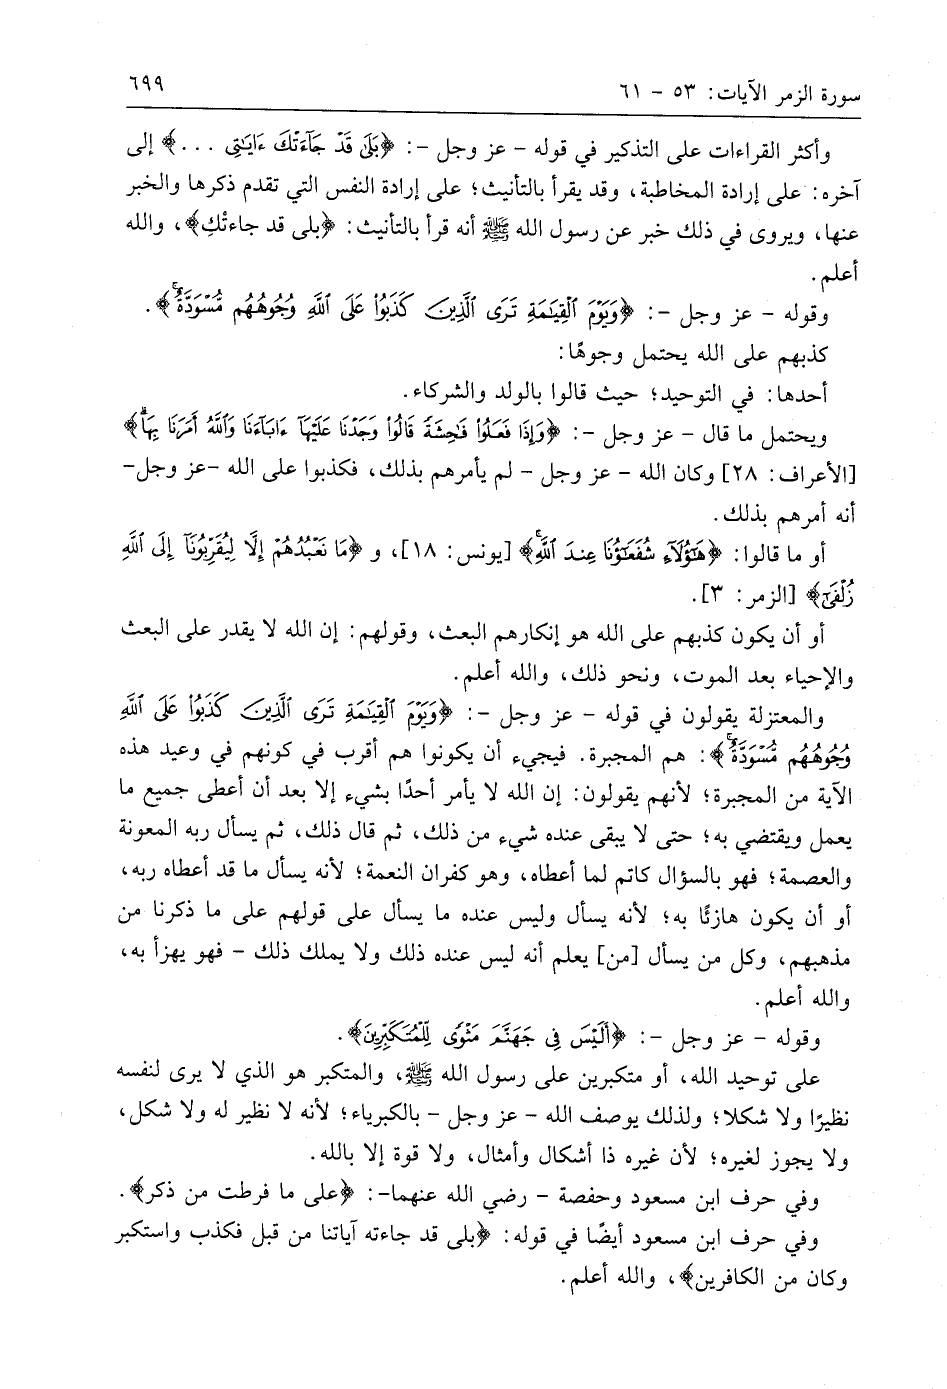 سورة الزمر الآيات: ٥٣ - ٦١ ٦٩٩
وأكثر القراءات على التذكير في قوله - عز وجل -: ﴿بَلَىٰ قَدْ جَآءَتْكَ ءَايَـٰتِى ...﴾ إلى
آخره: على إرادة المخاطبة، وقد يقرأ بالتأنيث؛ على إرادة النفس التي تقدم ذكرها والخبر
عنها، ويروى في ذلك خبر عن رسول الله ﷺ أنه قرأ بالتأنيث: ﴿بلى قد جاءتْكِ﴾، والله
أعلم.
وقوله - عز وجل -: ﴿وَيَوْمَ ٱلْقِيَـٰمَةِ تَرَى ٱلَّذِينَ كَذَبُوا۟ عَلَى ٱللَّهِ وُجُوهُهُم مُّسْوَدَّةٌ ۚ﴾.
كذبهم على الله يحتمل وجوهًا:
أحدها: في التوحيد؛ حيث قالوا بالولد والشركاء.
ويحتمل ما قال - عز وجل -: ﴿وَإِذَا فَعَلُوا۟ فَـٰحِشَةً قَالُوا۟ وَجَدْنَا عَلَيْهَآ ءَابَآءَنَا وَٱللَّهُ أَمَرَنَا بِهَا ۗ﴾
[الأعراف: ٢٨] وكان الله - عز وجل - لم يأمرهم بذلك، فكذبوا على الله -عز وجل-
أنه أمرهم بذلك.
أو ما قالوا: ﴿هَـٰٓؤُلَآءِ شُفَعَـٰٓؤُنَا عِندَ ٱللَّهِ ۚ﴾ [يونس: ١٨]، و ﴿مَا نَعْبُدُهُمْ إِلَّا لِيُقَرِّبُونَآ إِلَى ٱللَّهِ
زُلْفَىٰٓ﴾ [الزمر: ٣].
أو أن يكون كذبهم على الله هو إنكارهم البعث، وقولهم: إن الله لا يقدر على البعث
والإحياء بعد الموت، ونحو ذلك، والله أعلم.
والمعتزلة يقولون في قوله - عز وجل -: ﴿وَيَوْمَ ٱلْقِيَـٰمَةِ تَرَى ٱلَّذِينَ كَذَبُوا۟ عَلَى ٱللَّهِ
وُجُوهُهُم مُّسْوَدَّةٌ ۚ﴾: هم المجبرة. فيجيء أن يكونوا هم أقرب في كونهم في وعيد هذه
الآية من المجبرة؛ لأنهم يقولون: إن الله لا يأمر أحدًا بشيء إلا بعد أن أعطى جميع ما
يعمل ويقتضي به؛ حتى لا يبقى عنده شيء من ذلك، ثم قال ذلك، ثم يسأل ربه المعونة
والعصمة؛ فهو بالسؤال كاتم لما أعطاه، وهو كفران النعمة؛ لأنه يسأل ما قد أعطاه ربه،
أو أن يكون هازئًا به؛ لأنه يسأل وليس عنده ما يسأل على قولهم على ما ذكرنا من
مذهبهم، وكل من يسأل [من] يعلم أنه ليس عنده ذلك ولا يملك ذلك - فهو يهزأ به،
والله أعلم.
وقوله - عز وجل -: ﴿أَلَيْسَ فِى جَهَنَّمَ مَثْوًى لِّلْمُتَكَبِّرِينَ﴾.
على توحيد الله، أو متكبرين على رسول الله ﷺ، والمتكبر هو الذي لا يرى لنفسه
نظيرًا ولا شكلا؛ ولذلك يوصف الله - عز وجل - بالكبرياء؛ لأنه لا نظير له ولا شكل،
ولا يجوز لغيره؛ لأن غيره ذا أشكال وأمثال، ولا قوة إلا بالله.
وفي حرف ابن مسعود وحفصة - رضي الله عنهما-: ﴿على ما فرطت من ذكر﴾.
وفي حرف ابن مسعود أيضًا في قوله: ﴿بلى قد جاءته آياتنا من قبل فكذب واستكبر
وكان من الكافرين﴾، والله أعلم.